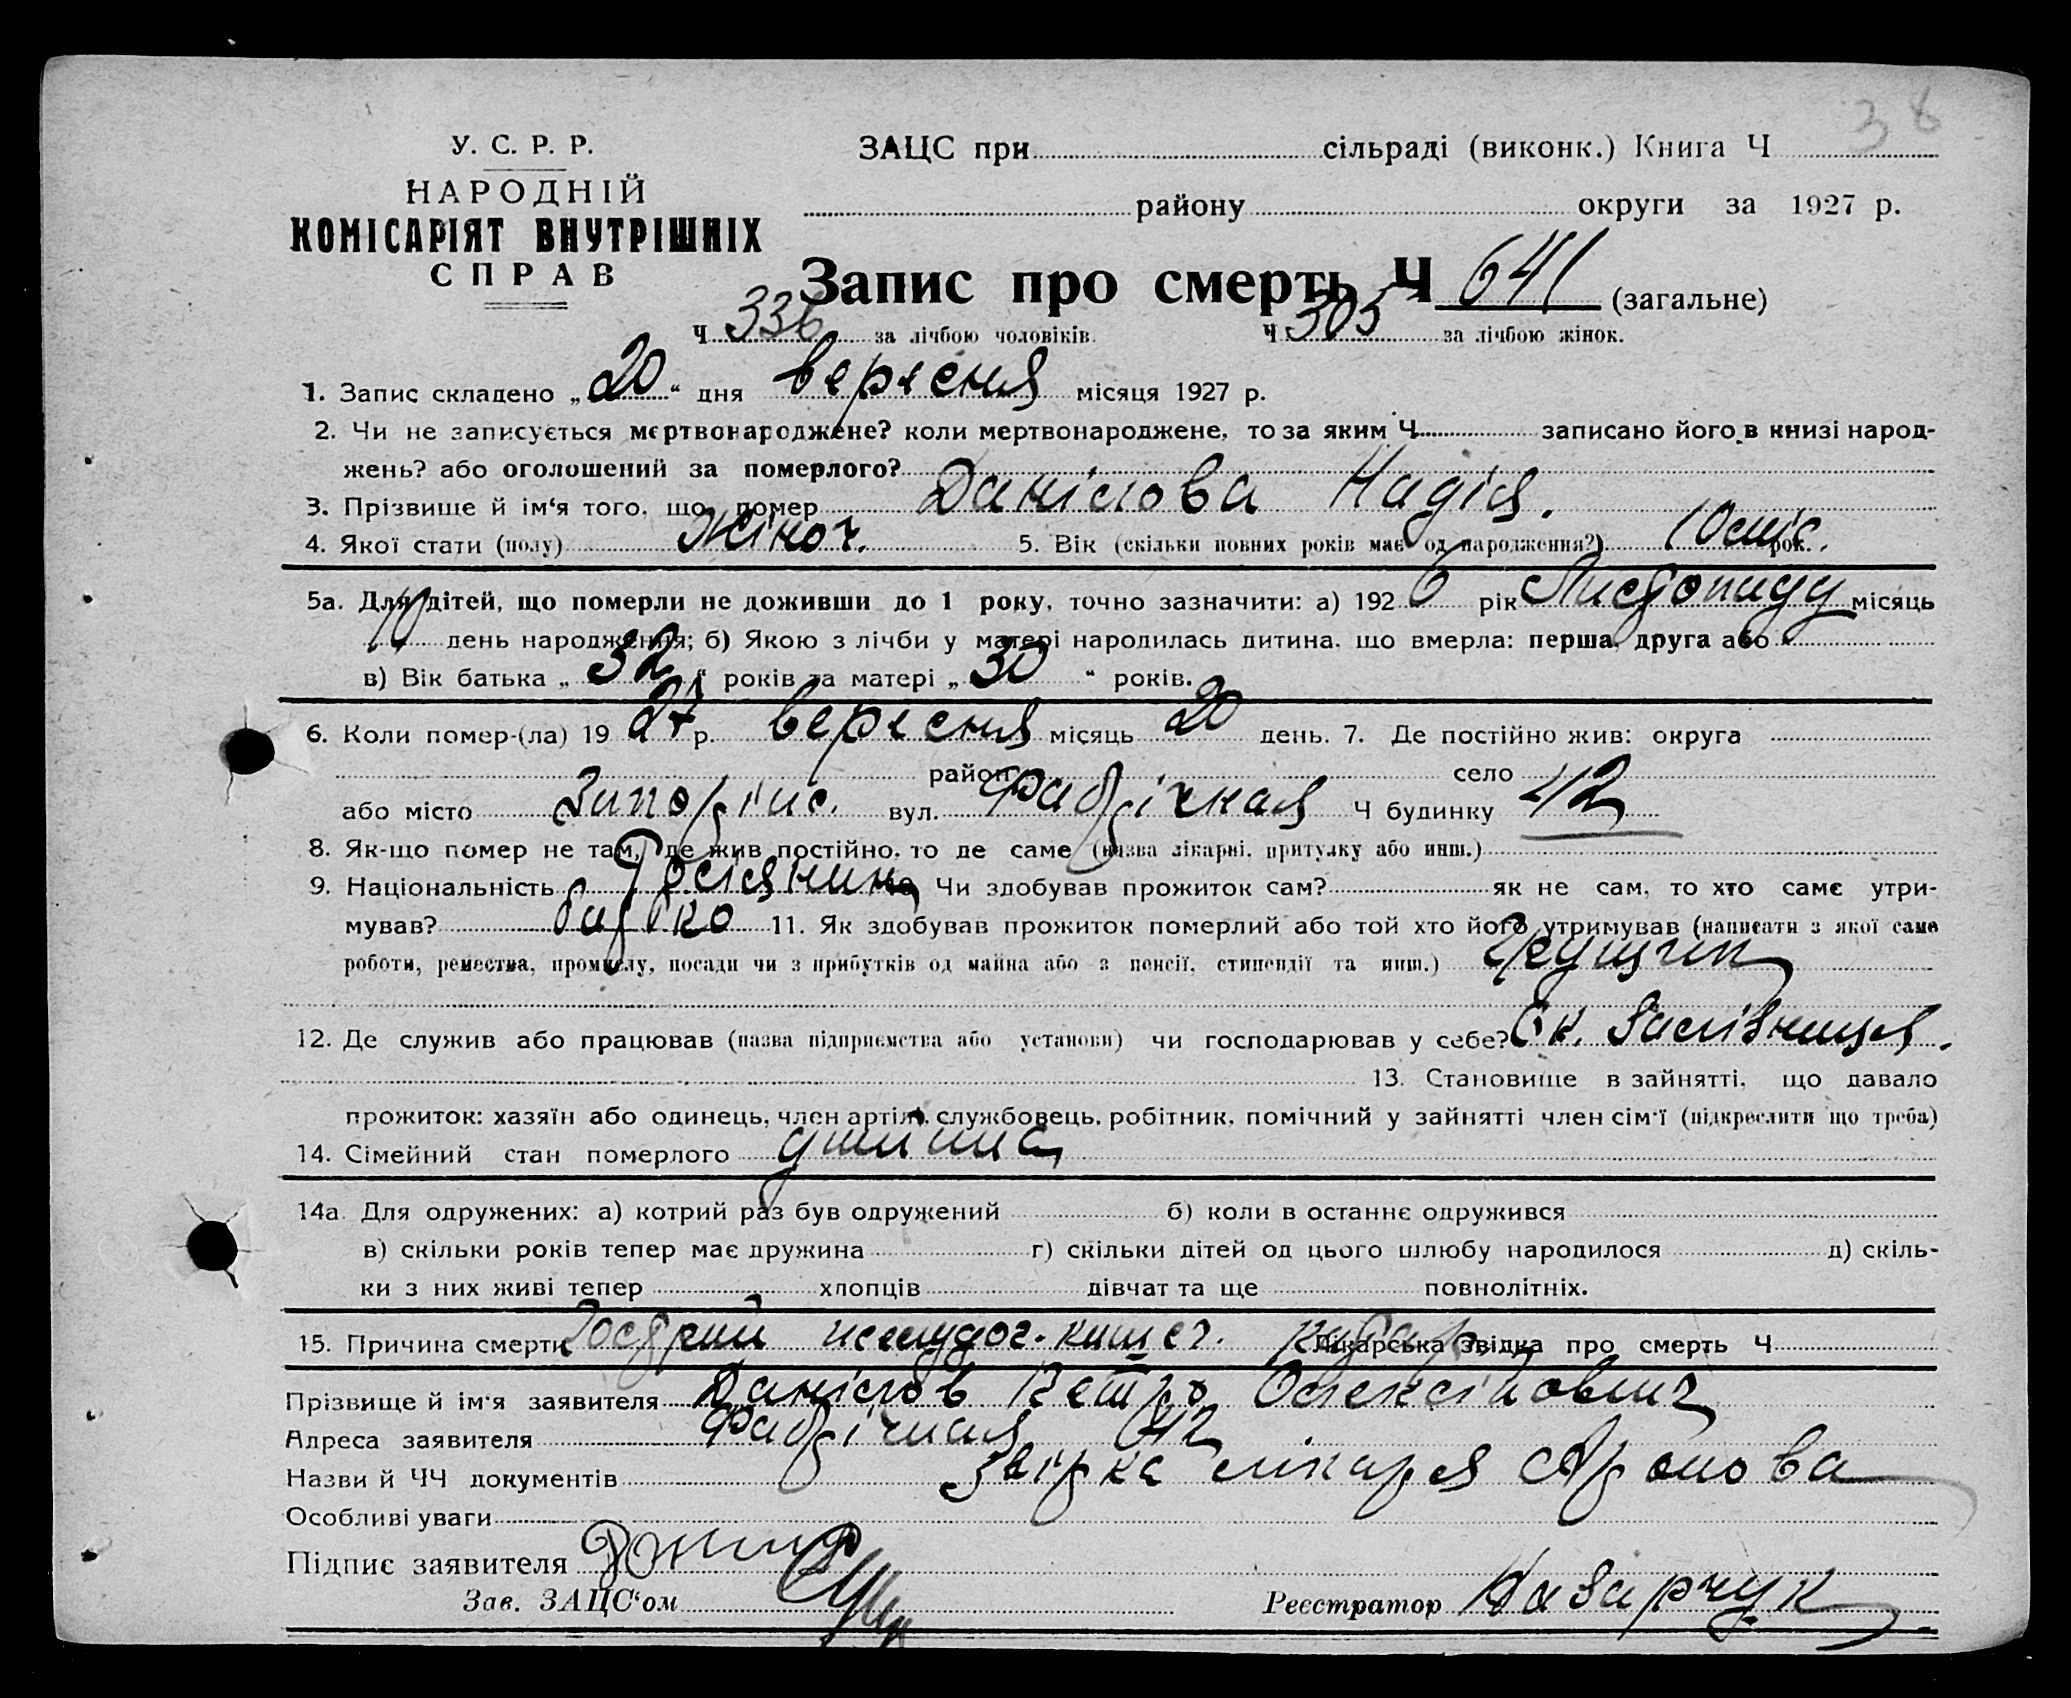 38
У. С. Р. Р.
НАРОДНІЙ
КОМІСАРІЯТ ВНУТРІШНІХ
СПРАВ
ЗАЦС при сільраді (виконк.) Книга Ч
району округи за 1927 р.
Запис про смерть Ч 641 (загальне)
Ч 336 за лічбою чоловіків. Ч 305 за лічбою жінок.
1. Запис складено „20“ дня вересня місяця 1927 р.
2. Чи не записується мертвонароджене? коли мертвонароджене, то за яким Ч записано його в книзі народ-
жень? або оголошений за померлого?
3. Прізвище й ім‘я того, що помер Данілова Надія.
4. Якої стати (полу) Жіноч. 5. Вік (скільки повних років має од народження?) 10 міс. рок.
5а. Для дітей, що померли не доживши до 1 року, точно зазначити: а) 1926 рік Листопаду місяць
10 день народження; б) Якою з лічби у матері народилась дитина, що вмерла: перша, друга або
в) Вік батька „32“ років та матері „30“ років.
6. Коли помер-(ла) 1927 р. вересня місяць 20 день. 7. Де постійно жив: округа
район село
або місто Запоріжс. вул. Фабрічная Ч будинку 42
8. Як-що помер не там, де жив постійно, то де саме (назва лікарні, притулку або инш.)
9. Національність Росіянин 10. Чи здобував прожиток сам? як не сам, то хто саме утри-
мував? батько 11. Як здобував прожиток померлий або той хто його утримував (написати з якої саме
роботи, ремества, промислу, посади чи з прибутків од майна або з пенсії, стипендії та инш.)
12. Де служив або працював (назва підприємства або установи) чи господарював у себе? Ок. Залізниця.
13. Становище в зайнятті, що давало
прожиток: хазяїн або одинець, член артілі, службовець, робітник, помічний у зайнятті член сім‘ї (підкреслити що треба)
14. Сімейний стан померлого
14а. Для одружених: а) котрий раз був одружений б) коли в останнє одружився
в) скільки років тепер має дружина г) скільки дітей од цього шлюбу народилося д) скіль-
ки з них живі тепер хлопців дівчат та ще повнолітніх.
15. Причина смерти Гострий желудоч.-кишеч. катар. Лікарська звідка про смерть Ч
Прізвище й ім‘я заявителя Данілов Петро Олексійович
Адреса заявителя Фабрічная 42
Назви й ЧЧ документів Звідка лікаря
Особливі уваги
Підпис заявителя
Зав. ЗАЦС‘ом Реєстратор Назарчук